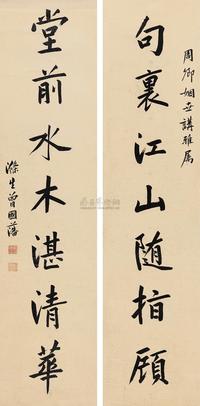 周卿姻世講雅属
句裏江山随指顧
堂前水木湛清華
滌生曾國藩